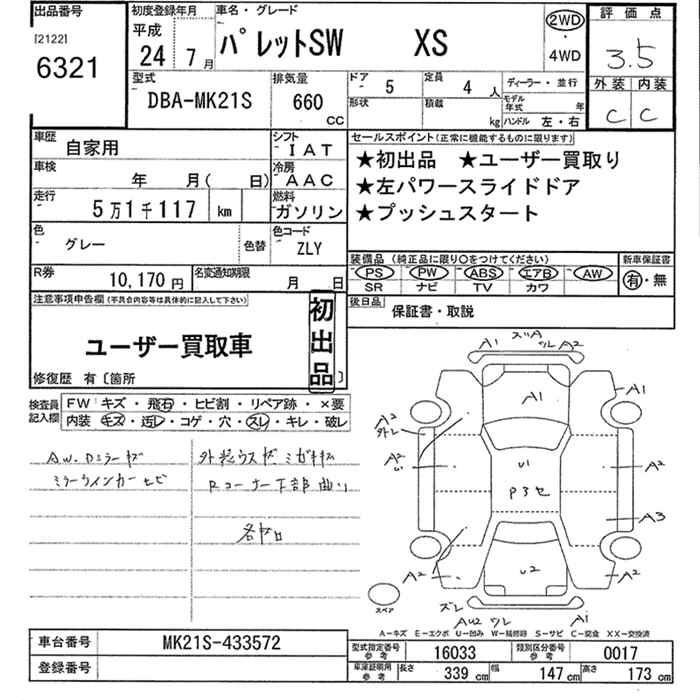 出品番号 初度登録年月 車名・グレード 評価点
[2122] 6321
平成 24 年 7月
パレットSW XS
2WD ・ 4WD
3.5
外装 内装
C C
型式 DBA-MK21S
排気量 660 CC
ドア 5 定員 4 人
形状 積載 kg
ディーラー・並行
モデル年式 年
ハンドル 左・右
車歴 自家用
シフト IAT
車検 年 月( 日)
冷房 AAC
走行 5万1千117 km
燃料 ガソリン
色 グレー 色替
色コード ZLY
R券 10,170円
名変通知期限 月 日
セールスポイント(正常に機能するものに限ります)
★初出品 ★ユーザー買取り
★左パワースライドドア
★プッシュスタート
装備品(純正品に限り○をつけてください) 新車保証書
PS PW ABS エアB AW 有・無
SR ナビ TV カワ
後日品 保証書・取説
注意事項申告欄(不具合内容等は具体的に記入して下さい)
初出品
ユーザー買取車
修復歴 有〔箇所 〕
検査員記入欄
FW キズ・飛石・ヒビ割・リペア跡・×要
内装 キズ・汚レ・コゲ・穴・スレ・キレ・破レ
AW.Dミラーキズ
ミラーウインカーヒビ
外装ウスキズ
Rコーナー下部曲り
A1 A2
A1 A1
A2 A2
U1
A2
A3
U2
A2 A2
ズレ
スペア
A1
A−キズ E−エクボ U−凹み W−補修跡 S−サビ C−腐食 XX−交換済
車台番号 MK21S-433572
登録番号
型式指定番号 参考 16033
類別区分番号 参考 0017
車庫証明用 参考 長さ 339 cm 幅 147 cm 高さ 173 cm